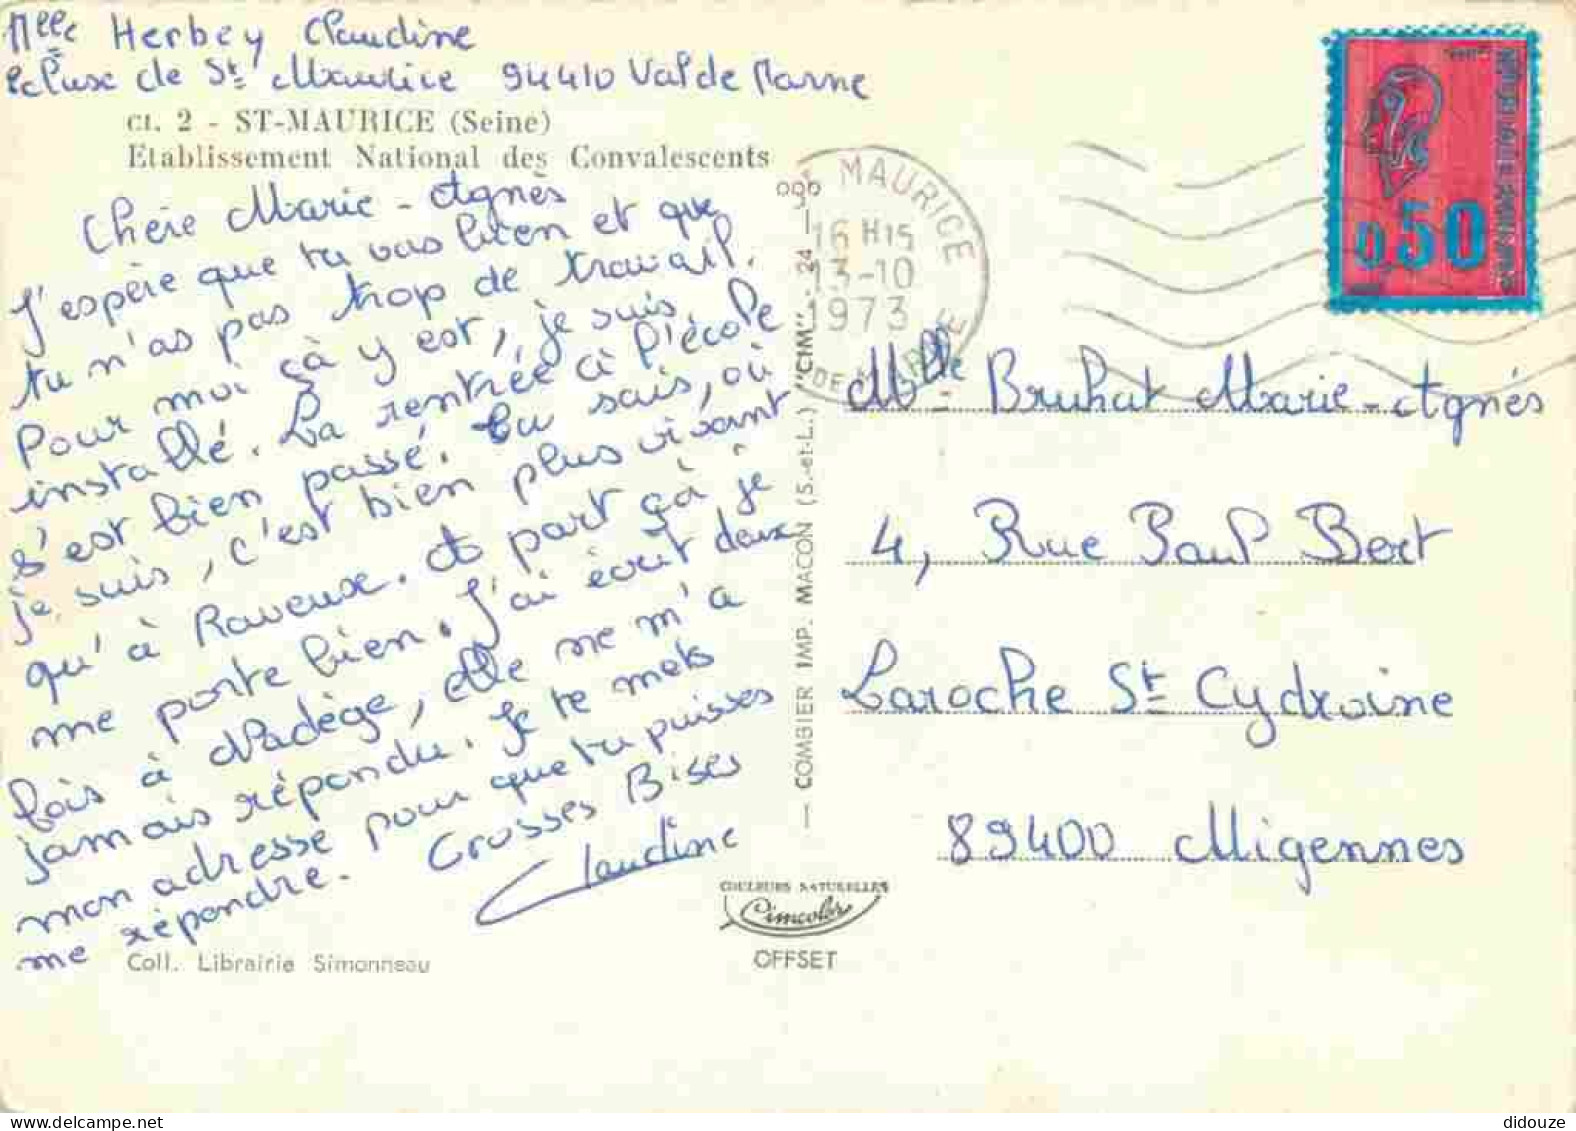 Melle Herbey Claudine
ecluse de St Maurice 94410 Val de Marne
CI. 2 - ST-MAURICE (Seine)
Etablissement National des Convalescents
Chère Marie-Agnès
J'espère que tu vas bien et que
tu n'as pas trop de travail.
Pour moi çà y est, je suis
installé. La rentrée à l'école
s'est bien passé. Tu sais, où
je suis, c'est bien plus vivant
qu'à Raveuse. A part çà je
me porte bien. J'ai écrit deux
fois à Nadège, elle ne m'a
jamais répondu. Je te mets
mon adresse pour que tu puisses
me répondre. Grosses Bises
Claudine
Coll. Librairie Simonneau
COMBIER IMP. MACON (S.-et-L.) "CIM" - 24
COULEURS NATURELLES
Cimcolor
OFFSET
MAURICE
16 H15
13-10
1973
DE MARNE
0,50
Mlle Bruhat Marie-Agnés
4, Rue Paul Bert
Laroche St Cydroine
89400 Migennes
didouze